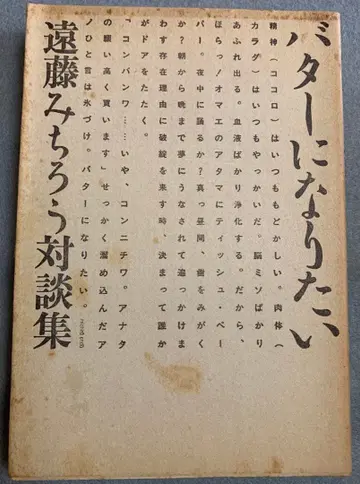 バターになりたい
精神（ココロ）はいつももどかしい。肉体（
カラダ）はいつもやっかいだ。脳ミソばかり
あふれ出る。血液ばかり浄化する。だから、
ほらっ！オマエのアタマにティッシュ・ペー
パー。夜中に踊るか？真っ昼間、歯をみがく
か？朝から晩まで夢にうなされて追っかけま
わす存在理由に破綻を来す時、決まって誰か
がドアをたたく。
「コンバンワ……いや、コンニチワ。アナタ
の願い高く買います」せっかく溜め込んだア
ノひと言は氷づけ。バターになりたい。
遠藤みちろう対談集